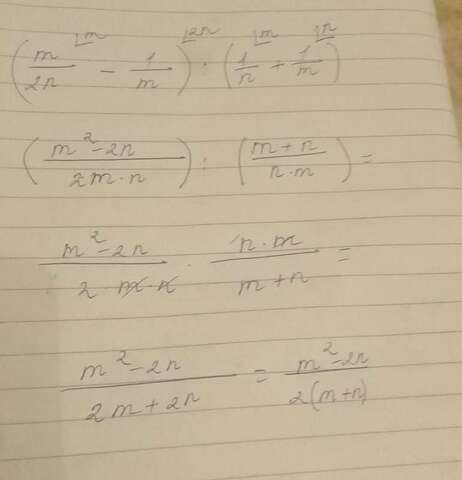 ⌊m ⌊2n ⌊m ⌊n
(m/2n - 1/m) : (1/n + 1/m)
((m²-2n)/(2m·n)) : ((m+n)/(n·m)) =
(m²-2n)/(2·m·n) · (n·m)/(m+n) =
(m²-2n)/(2m+2n) = (m²-2n)/(2(m+n))